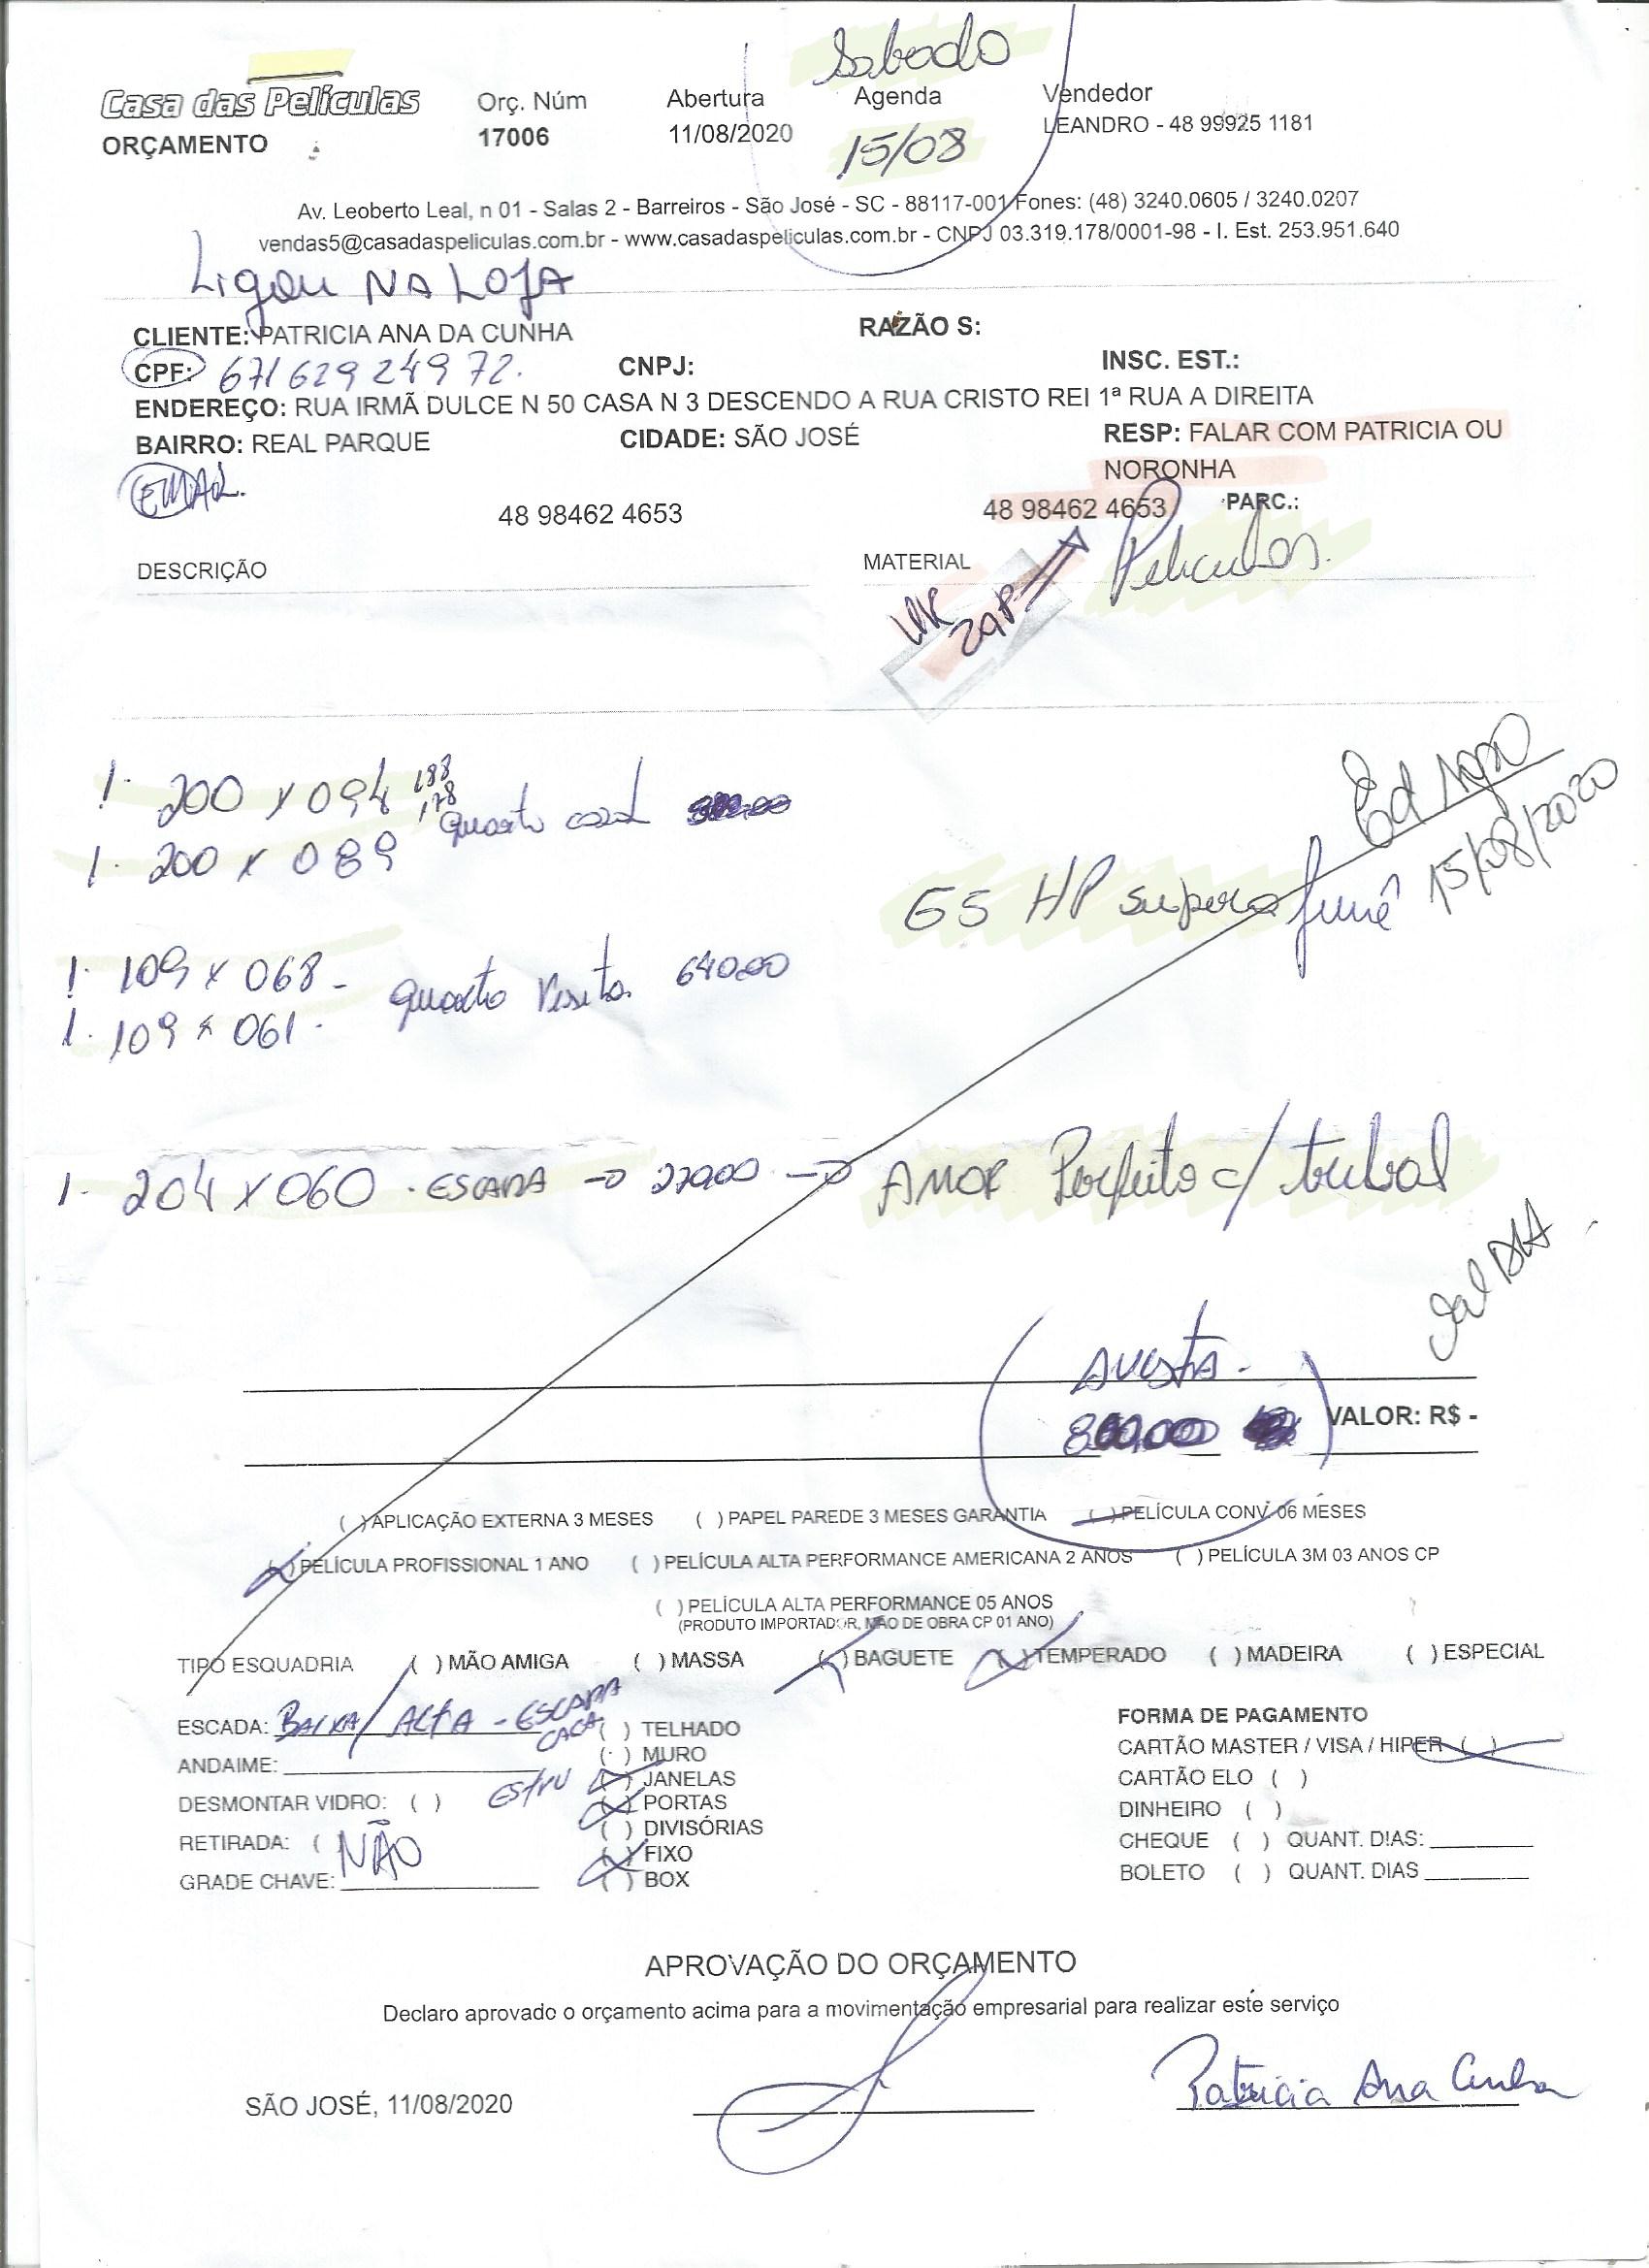 Sabado
Casa das Películas Orç. Núm Abertura Agenda Vendedor
ORÇAMENTO 17006 11/08/2020 15/08 LEANDRO - 48 99925 1181
Av. Leoberto Leal, n 01 - Salas 2 - Barreiros - São José - SC - 88117-001 Fones: (48) 3240.0605 / 3240.0207
vendas5@casadaspeliculas.com.br - www.casadaspeliculas.com.br - CNPJ 03.319.178/0001-98 - I. Est. 253.951.640
Ligou NA LOJA
CLIENTE: PATRICIA ANA DA CUNHA RAZÃO S:
CPF: 671 629 249 72. CNPJ: INSC. EST.:
ENDEREÇO: RUA IRMÃ DULCE N 50 CASA N 3 DESCENDO A RUA CRISTO REI 1ª RUA A DIREITA
BAIRRO: REAL PARQUE CIDADE: SÃO JOSÉ RESP: FALAR COM PATRICIA OU
NORONHA
EMAIL.
48 98462 4653 48 98462 4653 PARC.:
DESCRIÇÃO MATERIAL Peliculas.
ZAP
1. 200 x 094 188 Ed
178 Quarto casal 15/08/2020
1. 200 x 089
G5 HP supera fumê
1. 109 x 068 - Quarto Visita. 640,00
1. 109 x 061 -
1. 204 x 060 . ESCADA → 220,00 → AMOR Perfeito c/ tribal
AVISTA -
VALOR: R$ -
( ) APLICAÇÃO EXTERNA 3 MESES ( ) PAPEL PAREDE 3 MESES GARANTIA ( ) PELÍCULA CONV. 06 MESES
( ) PELÍCULA PROFISSIONAL 1 ANO ( ) PELÍCULA ALTA PERFORMANCE AMERICANA 2 ANOS ( ) PELÍCULA 3M 03 ANOS CP
( ) PELÍCULA ALTA PERFORMANCE 05 ANOS
(PRODUTO IMPORTADOR, MÃO DE OBRA CP 01 ANO)
TIPO ESQUADRIA ( ) MÃO AMIGA ( ) MASSA ( ) BAGUETE ( ) TEMPERADO ( ) MADEIRA ( ) ESPECIAL
ESCADA: BAIXA / ALTA - ESCADA CACA ( ) TELHADO FORMA DE PAGAMENTO
ANDAIME: ( ) MURO CARTÃO MASTER / VISA / HIPER ( )
ESTRU ( ) JANELAS CARTÃO ELO ( )
DESMONTAR VIDRO: ( ) ( ) PORTAS DINHEIRO ( )
RETIRADA: ( NÃO ( ) DIVISÓRIAS CHEQUE ( ) QUANT. DIAS:
( ) FIXO
GRADE CHAVE: ( ) BOX BOLETO ( ) QUANT. DIAS
APROVAÇÃO DO ORÇAMENTO
Declaro aprovado o orçamento acima para a movimentação empresarial para realizar este serviço
SÃO JOSÉ, 11/08/2020 Patricia Ana Cunha